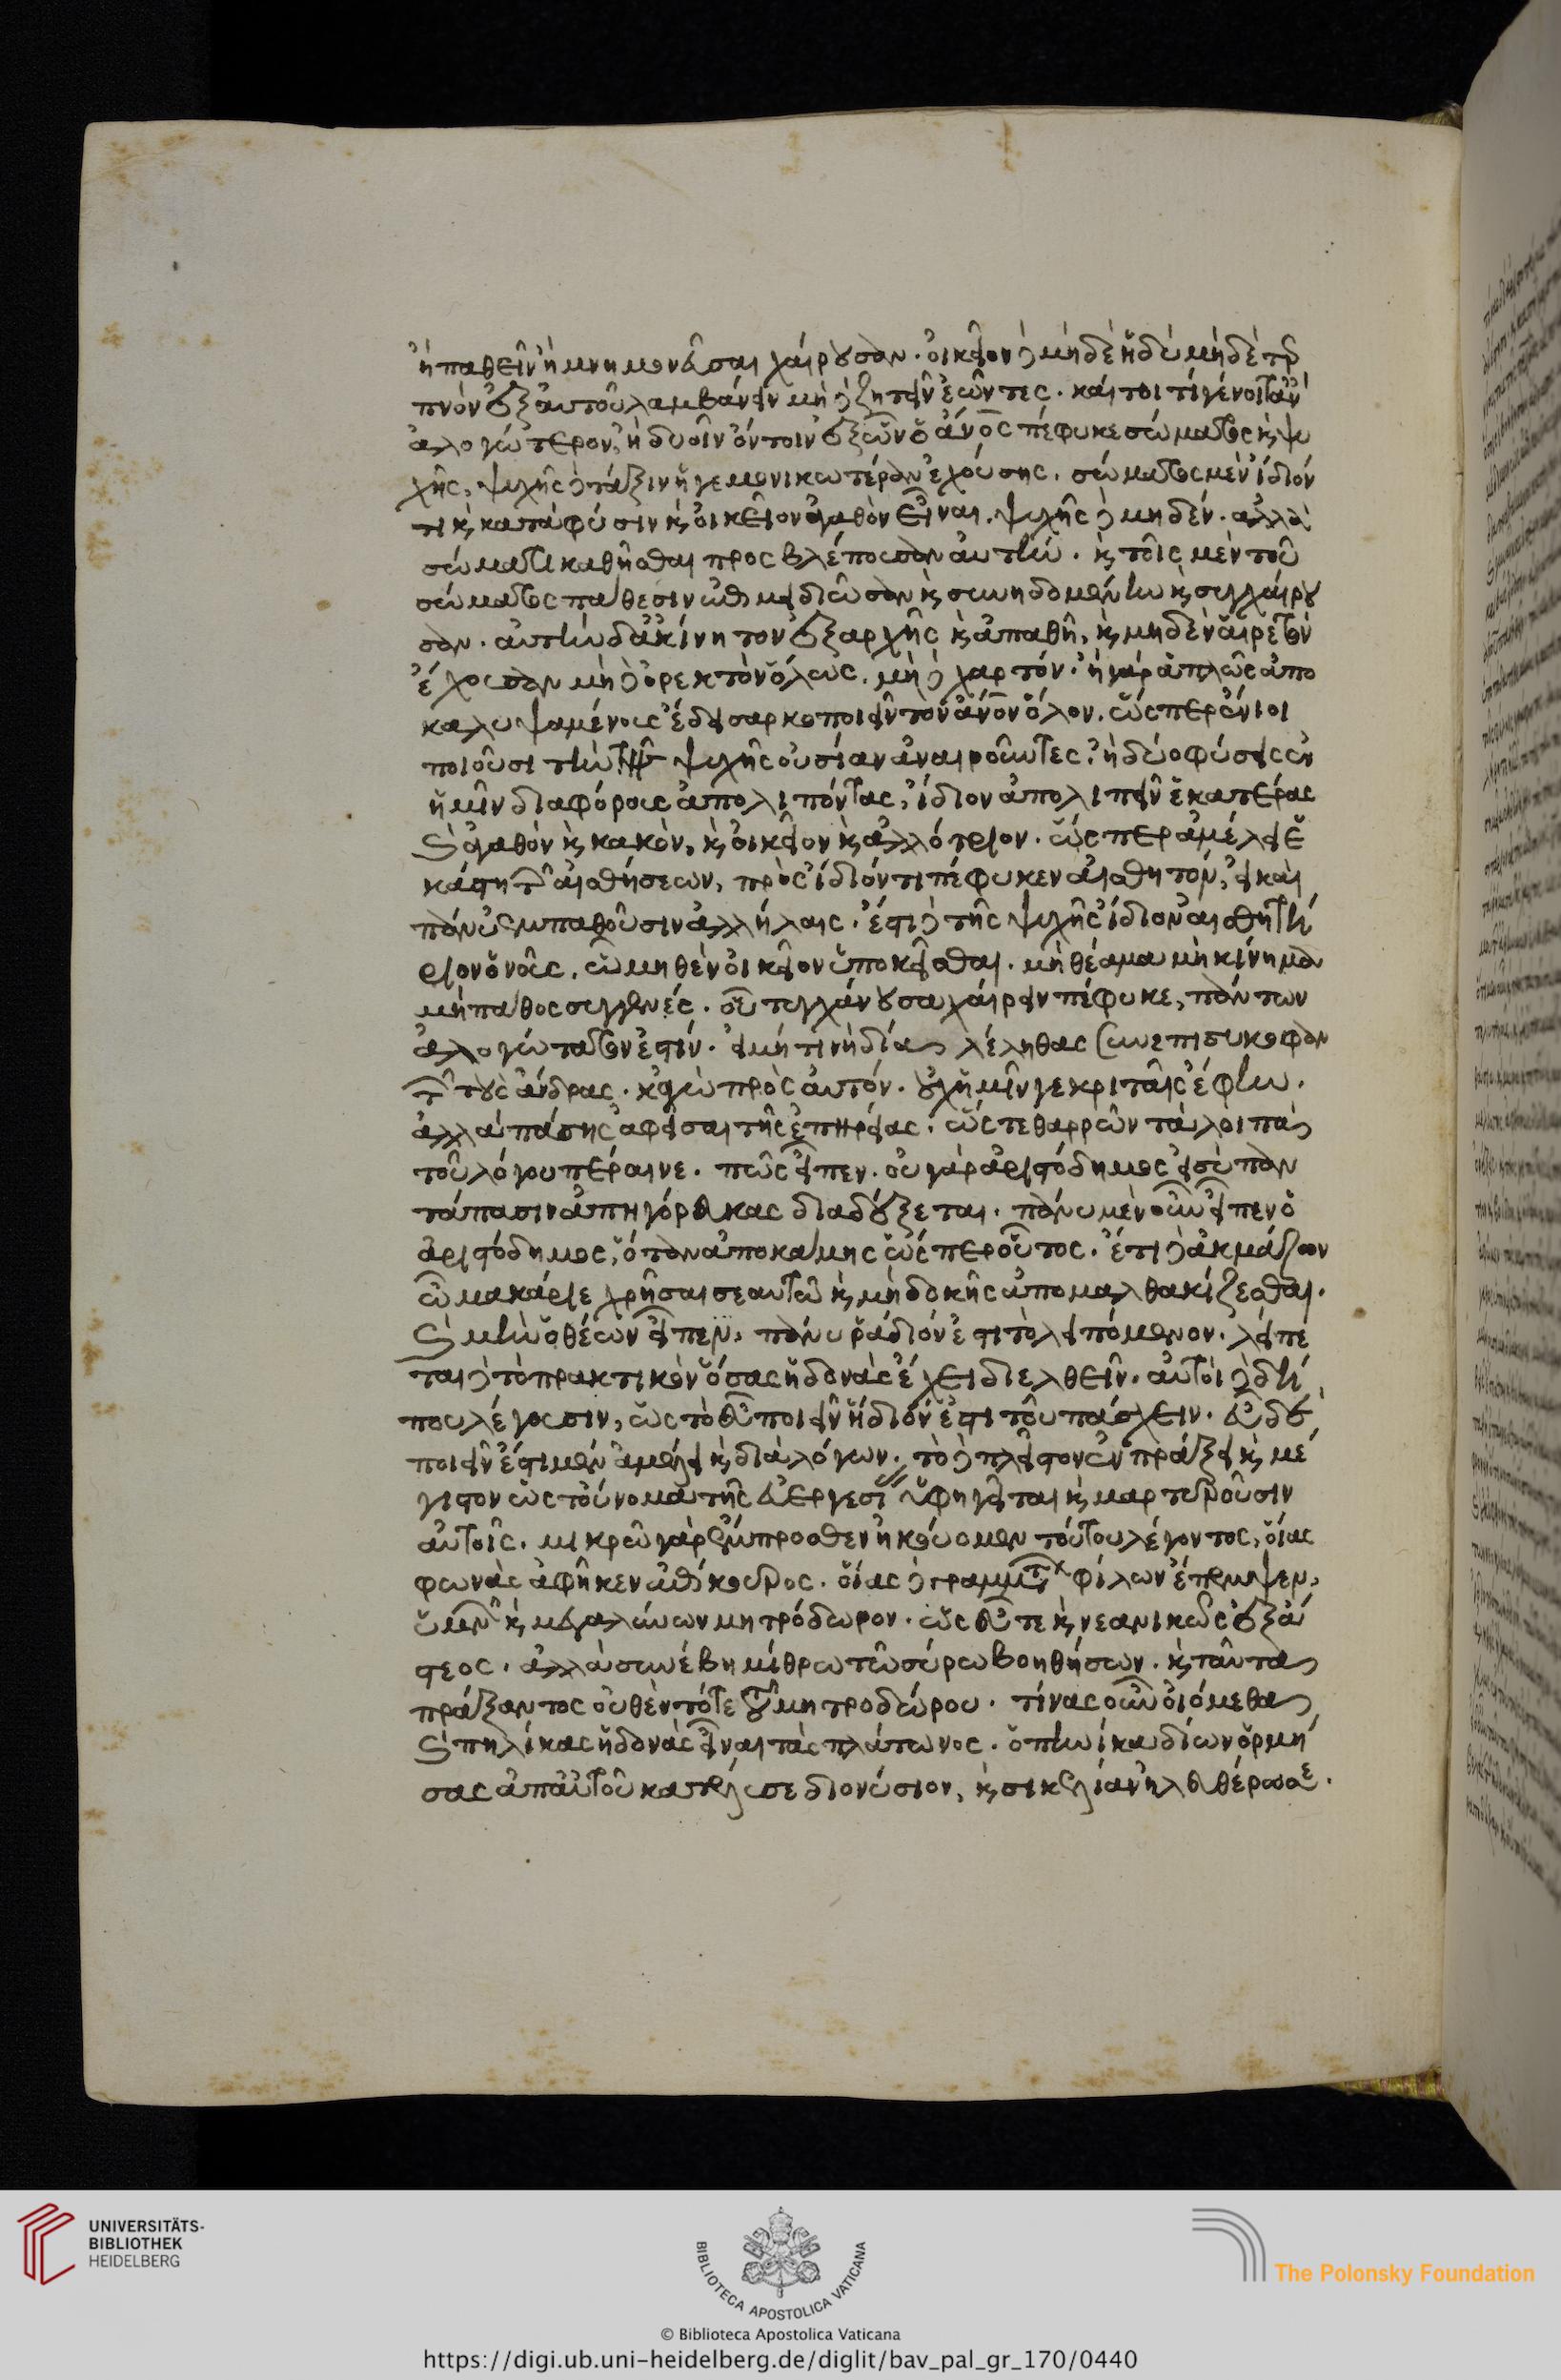 ἢ παθεῖν ἢ μνημονεῦσαι χαίρουσαν. οἰκεῖον δὲ μηδὲ ἡδὺ μηδὲ τερ
πνὸν ἐξ αὑτοῦ λαμβάνειν μὴ δὲ ζητεῖν ἐῶντες. καίτοι τί γένοιτ' ἂν
ἀλογώτερον, ἢ δυοῖν ὄντοιν ἐξ ὧν ὁ ἄνος πέφυκε σώματος κ ψυ
χῆς, ψυχῆς δὲ τάξιν ἡγεμονικωτέραν ἐχούσης. σώματος μὲν ἴδιόν
τι κ κατὰ φύσιν κ οἰκεῖον ἀγαθὸν εἶναι. ψυχῆς δὲ μηδέν. ἀλλὰ
σώματι καθῆσθαι προσβλέπουσαν αὐτὴν. κ τοῖς μὲν τοῦ
σώματος πάθεσιν ἐπιμειδιῶσαν κ συνηδομένην κ συγχαίρου
σαν. αὐτὴν δ' ἀκίνητον ἐξ ἀρχῆς κ ἀπαθῆ, κ μηδὲν αἱρετὸν
ἔχουσαν μὴ δὲ ὀρεκτὸν ὅλως. μὴ δὲ χαρτόν. ἢ γὰρ ἁπλῶς ἀπο
καλυψαμένους ἔδει σαρκοποιεῖν τὸν ἄνον ὅλον. ὥσπερ ἔνιοι
ποιοῦσι τὴν τῆς ψυχῆς οὐσίαν ἀναιροῦντες. ἢ δύο φύσεις ἐν
ἡμῖν διαφόρους ἀπολιπόντας, ἴδιον ἀπολιπεῖν ἑκατέρας
κ ἀγαθὸν κ κακὸν, κ οἰκεῖον κ ἀλλότριον. ὥσπερ ἀμέλει ἑ
κάστη τῶν αἰσθήσεων, πρὸς ἴδιόν τι πέφυκεν αἰσθητὸν, εἰ καὶ
πάνυ συμπαθοῦσιν ἀλλήλαις. ἔστι δὲ τῆς ψυχῆς ἴδιον αἰσθητή
ριον ὁ νοῦς. ᾧ μηθὲν οἰκεῖον ὑποκεῖσθαι. μὴ θέαμα μὴ κίνημα
μὴ πάθος συγγενές. οὗ τυγχάνουσα χαίρειν πέφυκε, πάντων
ἀλογώτατόν ἐστίν. εἰ μή τι νὴ δία λέληθας συνεπισυκοφαν
τῶν τοὺς ἄνδρας. κἀγὼ πρὸς αὐτόν. οὐχ ἡμῖν γε κριταῖς ἔφην.
ἀλλὰ πάσης ἀφεῖσαι τῆς ἐπηρείας. ὥστε θαρρῶν τὰ λοιπὰ
τοῦ λόγου πέραινε. πῶς εἶπεν. οὐ γὰρ ἀριστόδημος εἰ σὺ παν
τάπασιν ἀπηγόρευκας διαδέξεται. πάνυ μὲν οὖν εἶπεν ὁ
ἀριστόδημος, ὅταν ἀποκάμης ὥσπερ οὗτος. ἔτι δὲ ἀκμάζων
ὦ μακάριε χρῆσαι σεαυτῶ κ μὴ δοκῆς ἀπομαλθακίζεσθαι.
κ μὴν ὁ θέων εἶπεν, πάνυ ῥάδιόν ἐστι τὸ λειπόμενον. λείπε
ται δὲ τὸ πρακτικὸν ὅσας ἡδονὰς ἔχει διελθεῖν. αὐτοὶ δὲ δή
που λέγουσιν, ὡς τὸ εὖ ποιεῖν ἥδιόν ἐστι τοῦ πάσχειν. εὖ δὲ
ποιεῖν ἔστι μὲν ἀμέλει κ διὰ λόγων. τὸ δὲ πλεῖστον ἐν πράξει κ μέ
γιστον ὡς τοὔνομα τῆς εὐεργεσίας ὑφηγεῖται κ μαρτυροῦσιν
αὐτοῖς. μικρῶ γὰρ ἔμπροσθεν ἠκούομεν τούτου λέγοντος, οἵας
φωνὰς ἀφῆκεν ἐπίκουρος. οἵας δὲ γράμματα τοῖς φίλων ἔπεμψεν,
ὑμνῶν κ μεγαλύνων μητρόδωρον. ὡς εὖ τε κ νεανικῶς ἐξ ἄ
στεος. ἀλλὰ συνέβη μίθρω τῶ σύρω βοηθήσων. κ ταῦτα
πράξαντος οὐθὲν τότε τοῦ μητροδώρου. τίνας οὖν οἰόμεθα
κ πηλίκας ἡδονὰς εἶναι τὰς πλάτωνος. ὁπηνίκα δίων ὁρμή
σας ἀπ' αὐτοῦ κατέλυσε διονύσιον, κ σικελίαν ἠλευθέρωσε.
UNIVERSITÄTS-
BIBLIOTHEK
HEIDELBERG
BIBLIOTECA APOSTOLICA VATICANA
The Polonsky Foundation
© Biblioteca Apostolica Vaticana
https://digi.ub.uni-heidelberg.de/diglit/bav_pal_gr_170/0440